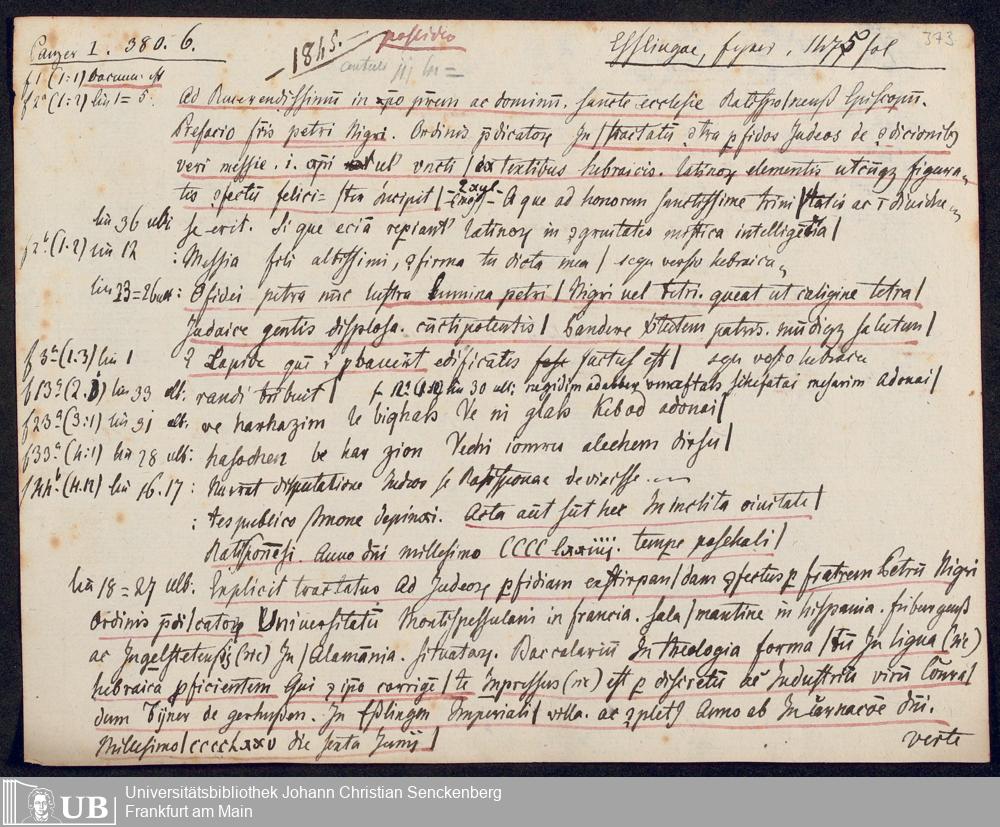 Panzer I. 380. 6.
1845. possideo
Esslingae, fyner, 1475 fol
373
f 1 (1:1) vacuum est
f 2ª (1:2) lin 1=5. Ad Reuerendissimū in xp̄o pr̄em ac dominū. sancte ecclesie Ratispo/nenß Episcopū.
Prefacio fr̄is petri Nigri. Ordinis p̄dicatoꝝ In/tractatū ꝯtra ꝑfidos Judeos de ꝯdicionibꝫ
veri messie. i. xp̄i vel vncti/ex textibus hebraicis. latinoꝝ elementis utcūqꝫ figura
tis ꝯfectū felici= incipit/ A que ad honorem sanctissime trini/tatis ac indiuidue
lin 36 ulti se erit. Si que eciā repiant' latinoꝝ in ꝯgruitates mistica intelligētia/
f 2ᵇ. (1.2) lin 12 : Messia fili altissimi, ꝯfirma tu dicta mea/ sequ verso hebraica
lin 23=26 : O fidei petra nūc lustra lumina petri/ Nigri vel tetri. queat ut caligine tetra/
Judaice gentis displosa. cūctipotentis/ Pandere v̄tutem patris. mūdiqꝫ salutem/
f 3ª (1.3) lin 1 Lapide qui edificātes factus est/ sequ verso hebraica
f 13ª (2.) lin 33 ult. randi tribuit/ lin 30 ult: Adonai/
f 23ª (3:1) lin 31 ult. ve harhazim le bighals Ve ni glals Kebod adonai/
f 33ª (4:1) lin 28 ult: hasochen be har zion Vechi iomru alechem dirsu/
f 44ᵇ. (4.12) lin 16.17 : Narrat disputatione Judeos se Ratisponae devicisse.
: tes publico sermone depinxi. Acta aūt sūt hec In inclita ciuitate/
Ratisponēsi. Anno dn̄i millesimo CCCC lxxiiij. tempe paschali/
lin 18=27 ult. Explicit tractatus ad Judeoꝝ ꝑfidiam extirpan/dam ꝯfectus ꝑ fratrem Petrū Nigri
Ordinis p̄di/catoꝝ Uniuersitatū Montispessulani in francia. Sala/mantine in hispania. friburgenß
ac Ingelstetenß (sic) In/Alamānia. situataꝝ. Baccalariū In theologia forma/tū In ligua (sic)
hebraica ꝑficientem Qui ꝯ ip̄o corrigē/te Inpressus (sic) est ꝑ discretū ac Industriū virū Cōnra/
dum Fyner de gerhussen. In Eßlingen Imperiali/ villa. ac ꝯpletꝰ Anno ab Incarnacōe dn̄i.
Millesimo/cccclxxv die sexta Junij/
verte
UB
Universitätsbibliothek Johann Christian Senckenberg
Frankfurt am Main